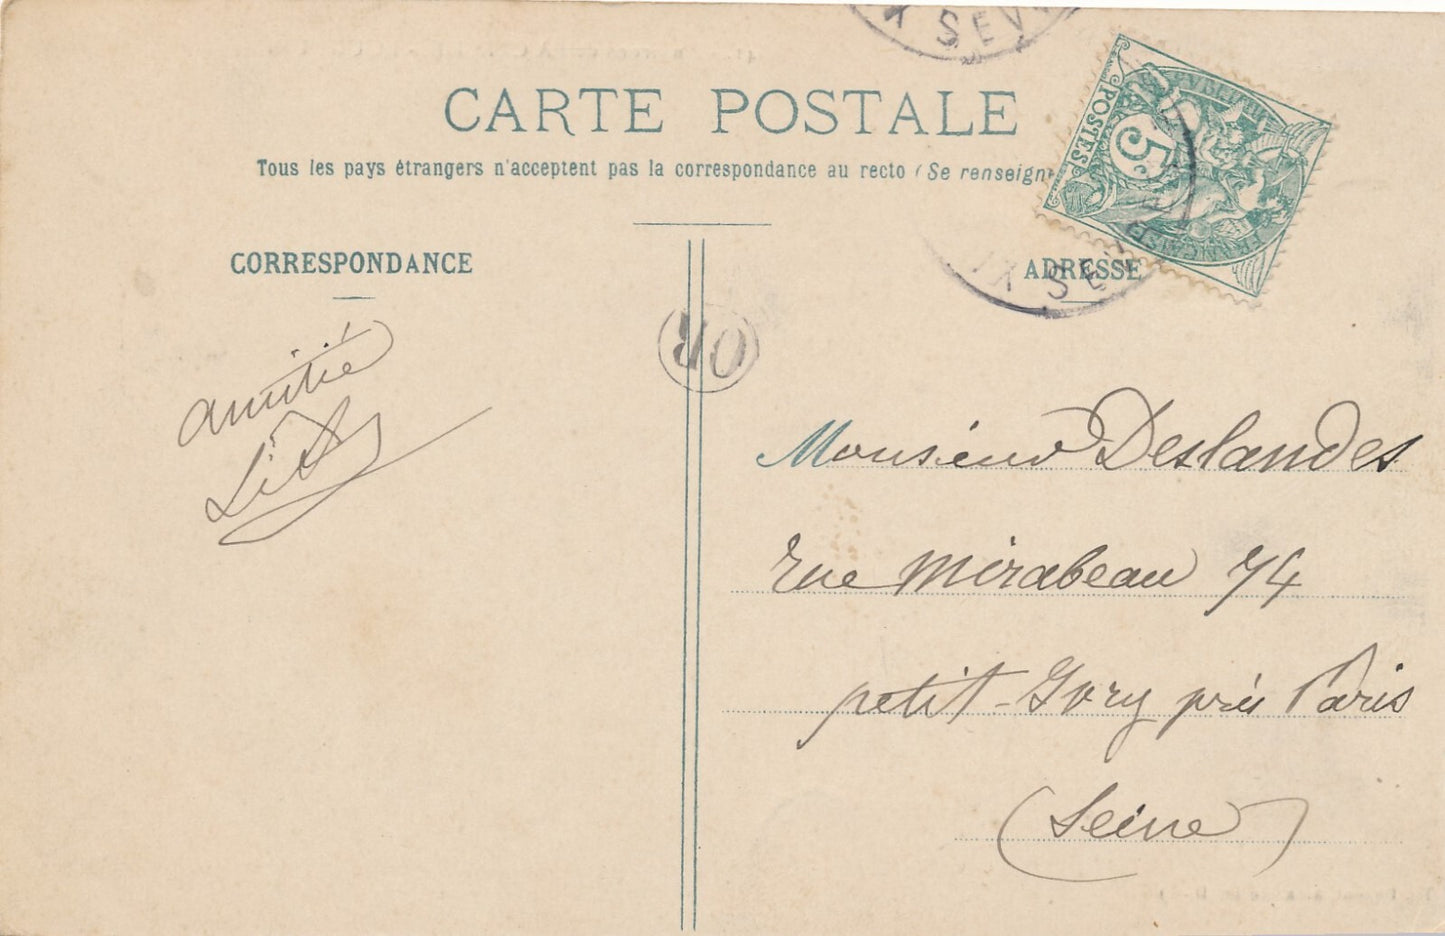 CARTE POSTALE
Tous les pays étrangers n'acceptent pas la correspondance au recto (Se renseign
CORRESPONDANCE
ADRESSE
POSTES
5c
FRANÇAISE
X SEV
X SE
OR
amitié
Monsieur Deslandes
rue Mirabeau 74
petit-Ivry près Paris
(Seine)